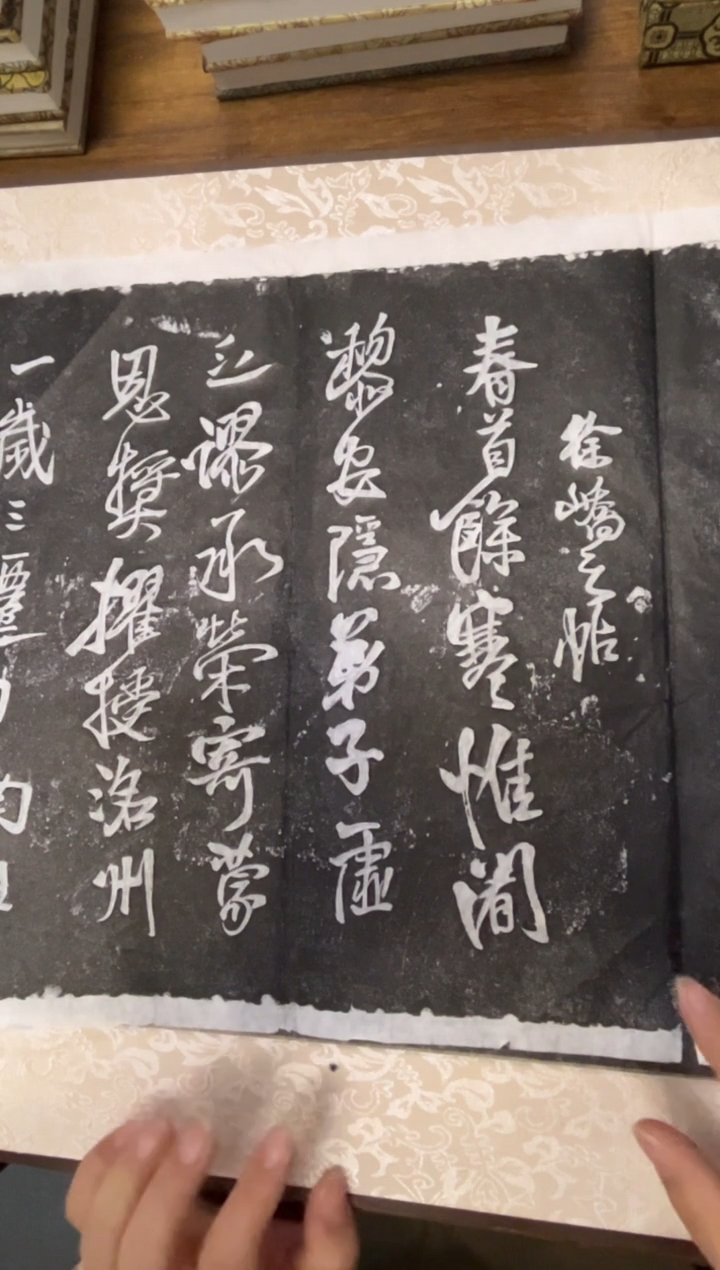 徐嶠之帖
春首餘寒惟闍
黎安隱弟子虛
乏謬承榮寄蒙
恩獎擢授洺州
一歲三遷